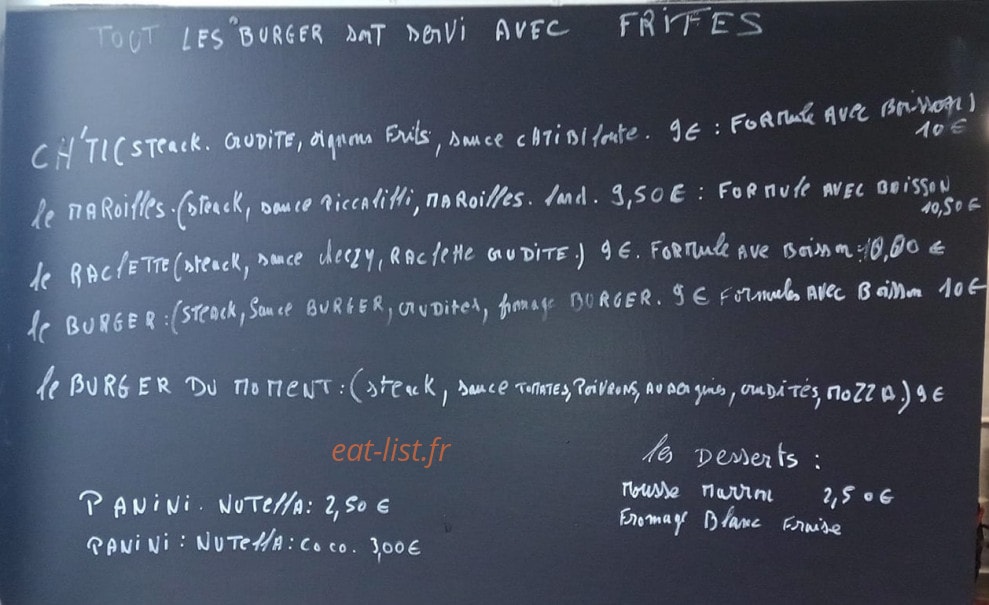 TOUT LES BURGER SONT SERVI AVEC FRITES
CH'TI (STEACK. CRUDITE, oignons Frits, sauce CHTIBI foute. 9€ : FORMule AVEC Boisson)
10€
le MARoilles. (steack, sauce Piccalilli, MARoilles. lard. 9,50€ : FORMule AVEC BOISSON
10,50€
le RAClETTE (steack, sauce cheezy, RAClette CRUDITE.) 9€. FORMule AVE Boisson : 10,00 €
le BURGER : (STEACK, Sauce BURGER, CRUDITES, fromage BURGER. 9€ FORMules AVEC Boisson 10€
le BURGER DU MOMENT : (steack, sauce TOMATES, POIVRONS, AUBERgines, CRUDITÉS, MOZZA.) 9€
eat-list.fr
les Desserts :
PANiNi. NUTEllA : 2,50€
Mousse Marron 2,50€
PANiNi : NUTEllA : COCO. 3,00€
Fromage Blanc Fraise